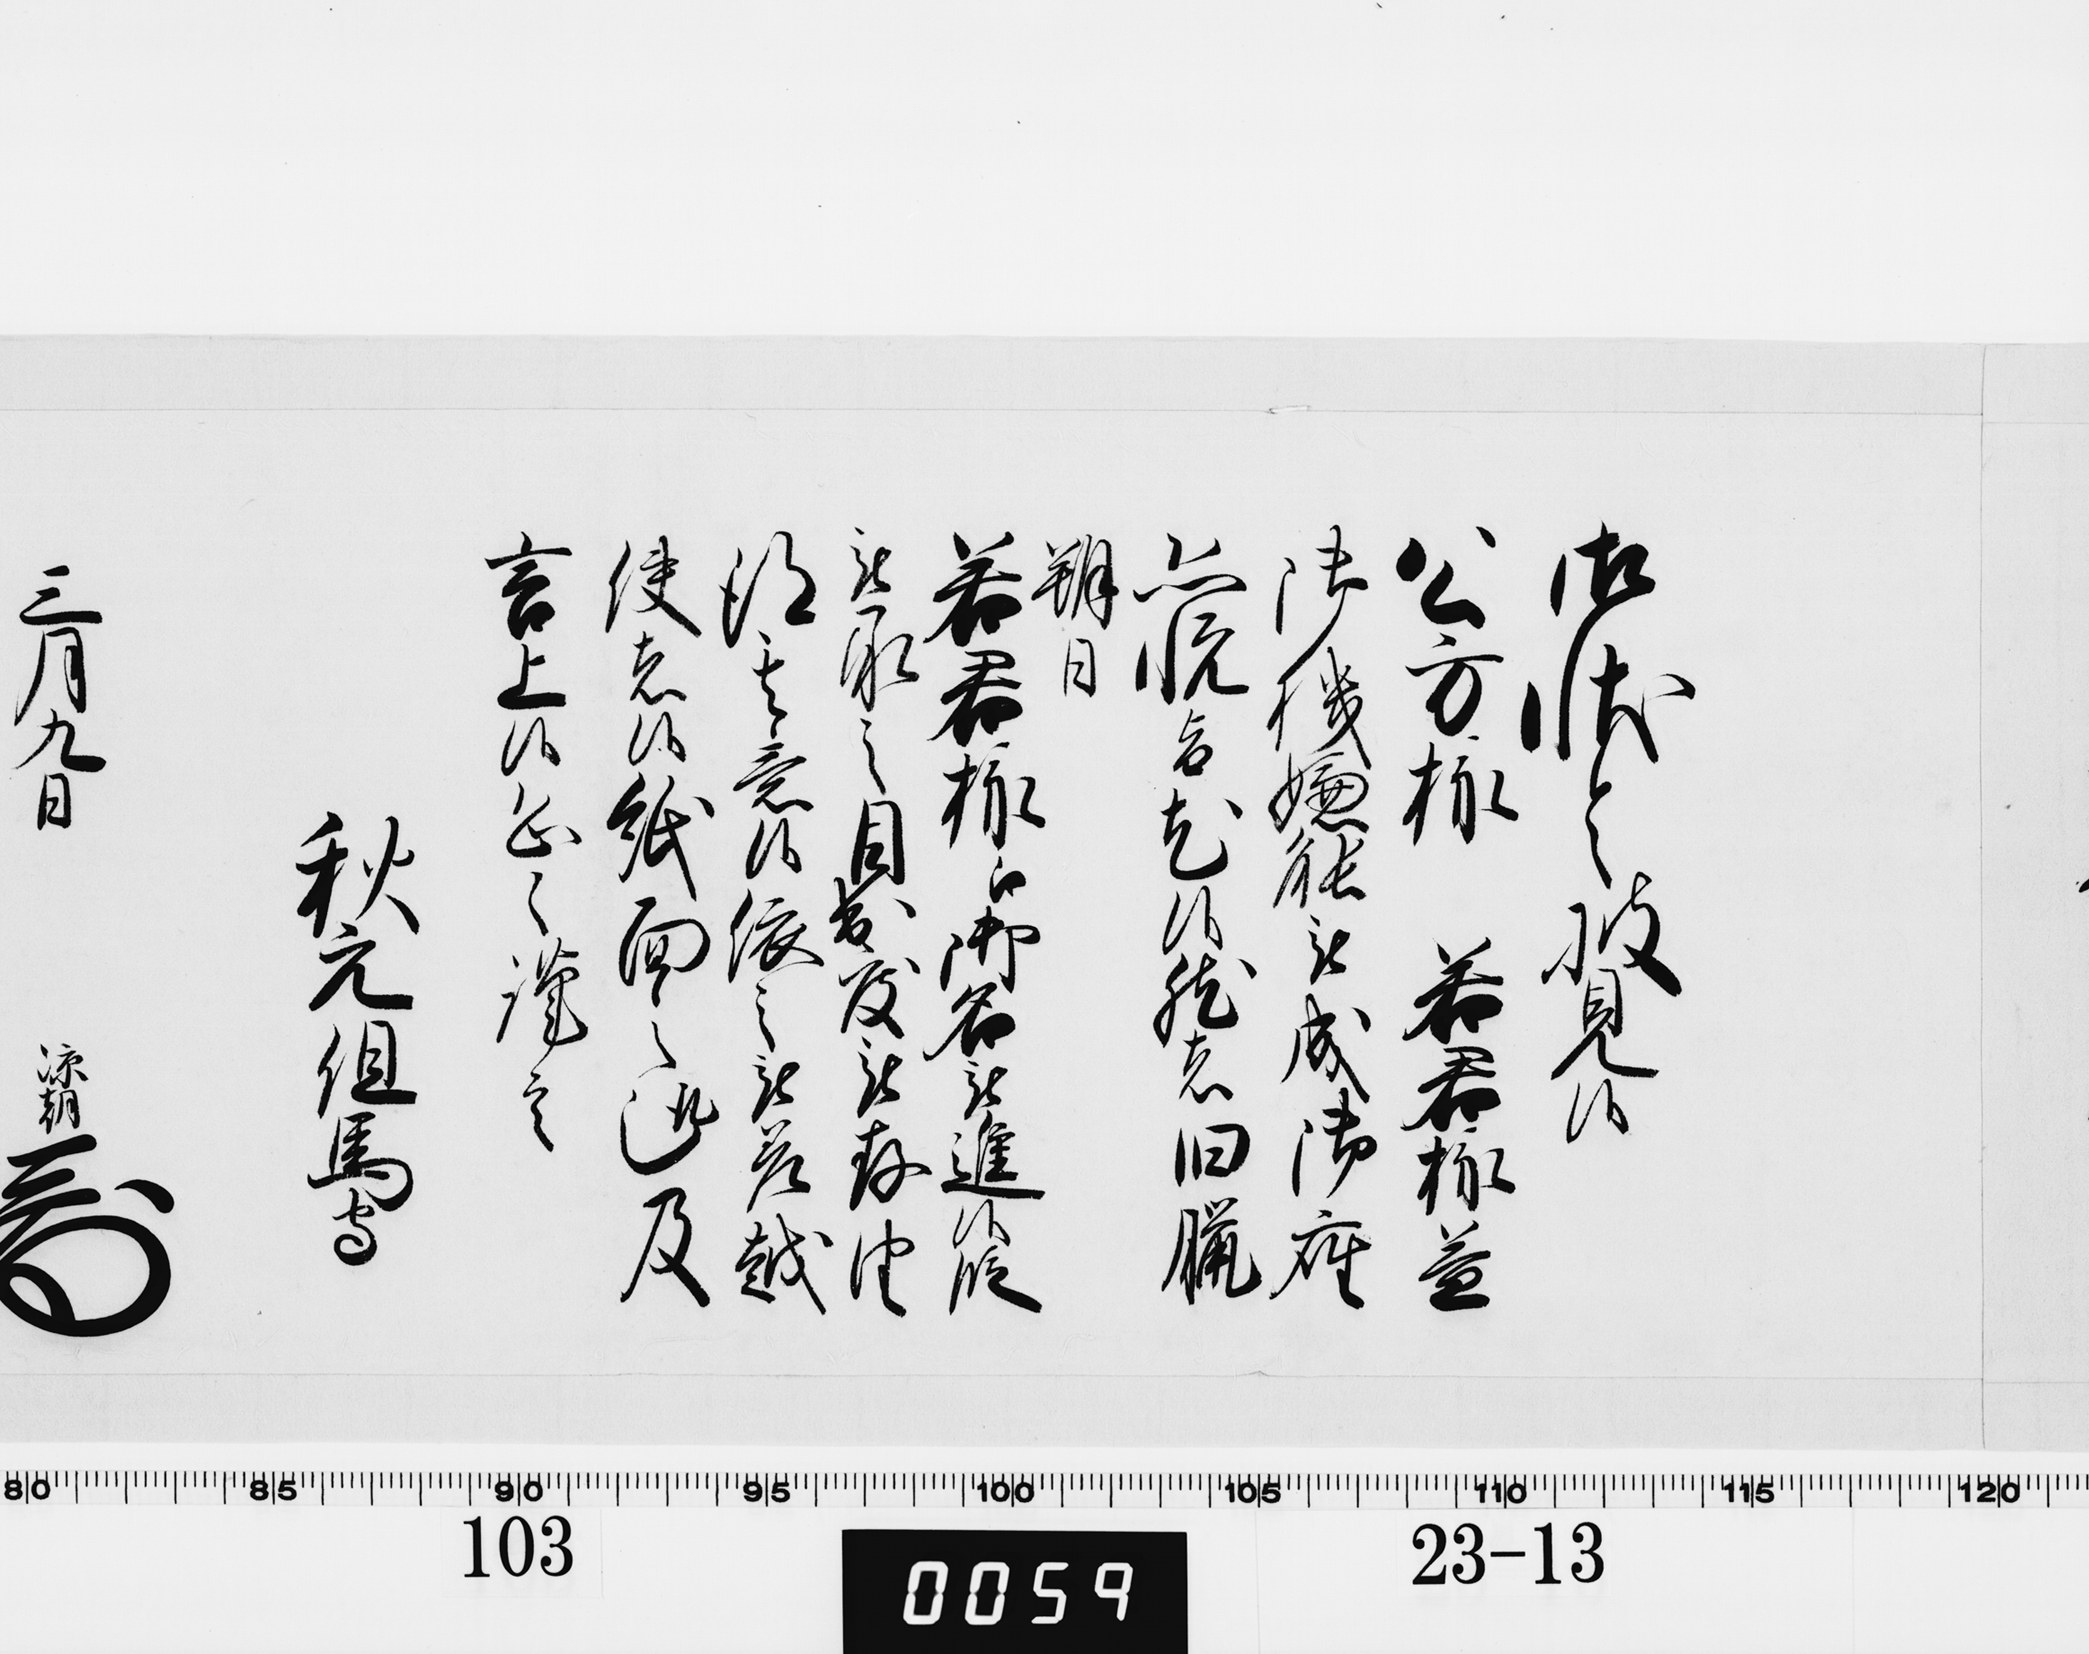 御状令披見候
公方様 若君様益
御機嫌能被成御座
恐悦旨尤候然者旧臘
朔日
若君様御名被進候段
被承之目出度被存候
得其意候依之被差越
使者候紙面之趣及
言上候恐々謹言
秋元但馬守
三月九日
凉朝
80 85 90 95 100 105 110 115 120
103
23-13
0059